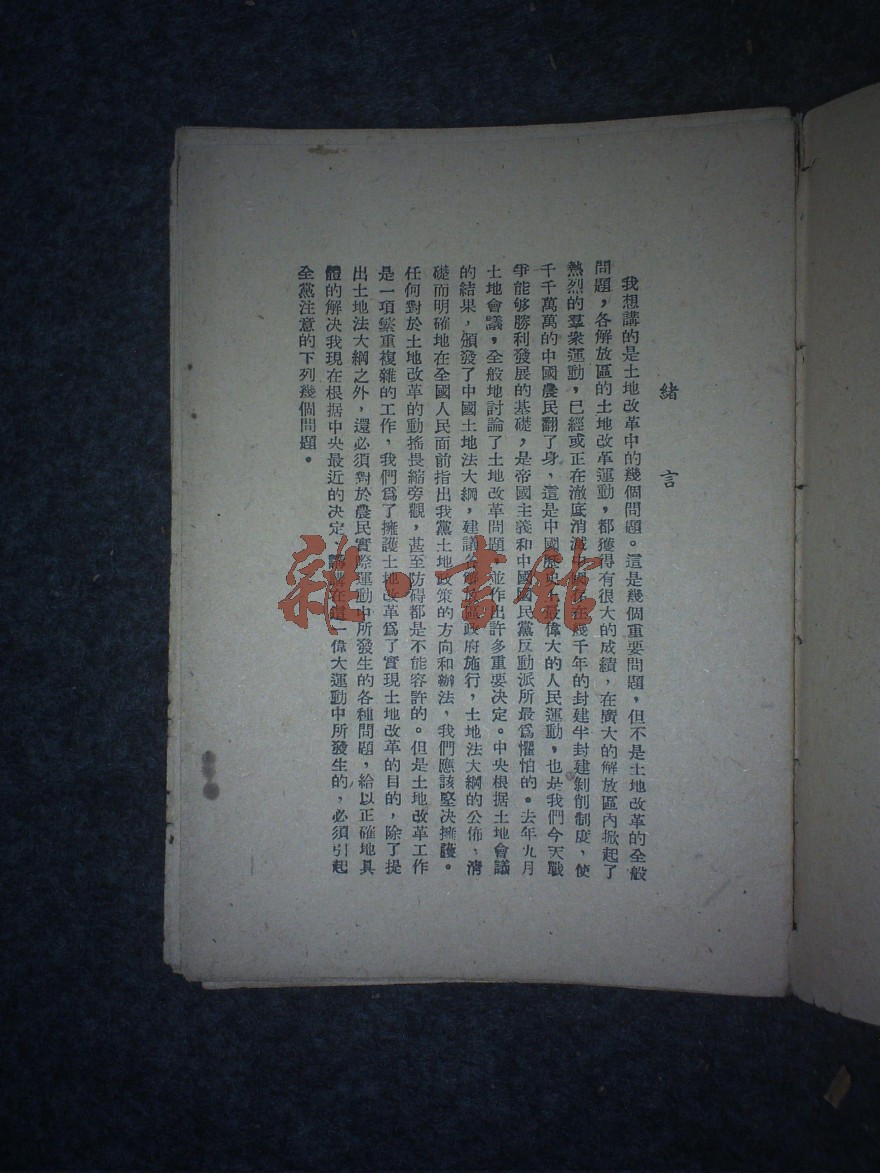 緒言
我想講的是土地改革中的幾個問題。這是幾個重要問題，但不是土地改革的全般
問題，各解放區的土地改革運動，都獲得有很大的成績，在廣大的解放區內掀起了
熱烈的羣衆運動，已經或正在澈底消滅中國存在幾千年的封建半封建剝削制度，使
千千萬萬的中國農民翻了身，這是中國歷史上最偉大的人民運動，也是我們今天戰
爭能够勝利發展的基礎，是帝國主義和中國國民黨反動派所最爲懼怕的。去年九月
土地會議，全般地討論了土地改革問題，並作出許多重要决定。中央根据土地會議
的結果，頒發了中國土地法大綱，建議各解放區政府施行，土地法大綱的公佈，清
礎而明確地在全國人民面前指出我黨土地政策的方向和辦法，我們應該堅决擁護。
任何對於土地改革的動搖畏縮旁觀，甚至防碍都是不能容許的。但是土地改革工作
是一項繁重複雜的工作，我們爲了擁護土地改革爲了實現土地改革的目的，除了提
出土地法大綱之外，還必須對於農民實際運動中所發生的各種問題，給以正確地具
體的解决我現在根据中央最近的决定，講講在這一偉大運動中所發生的，必須引起
全黨注意的下列幾個問題。
雜·書館